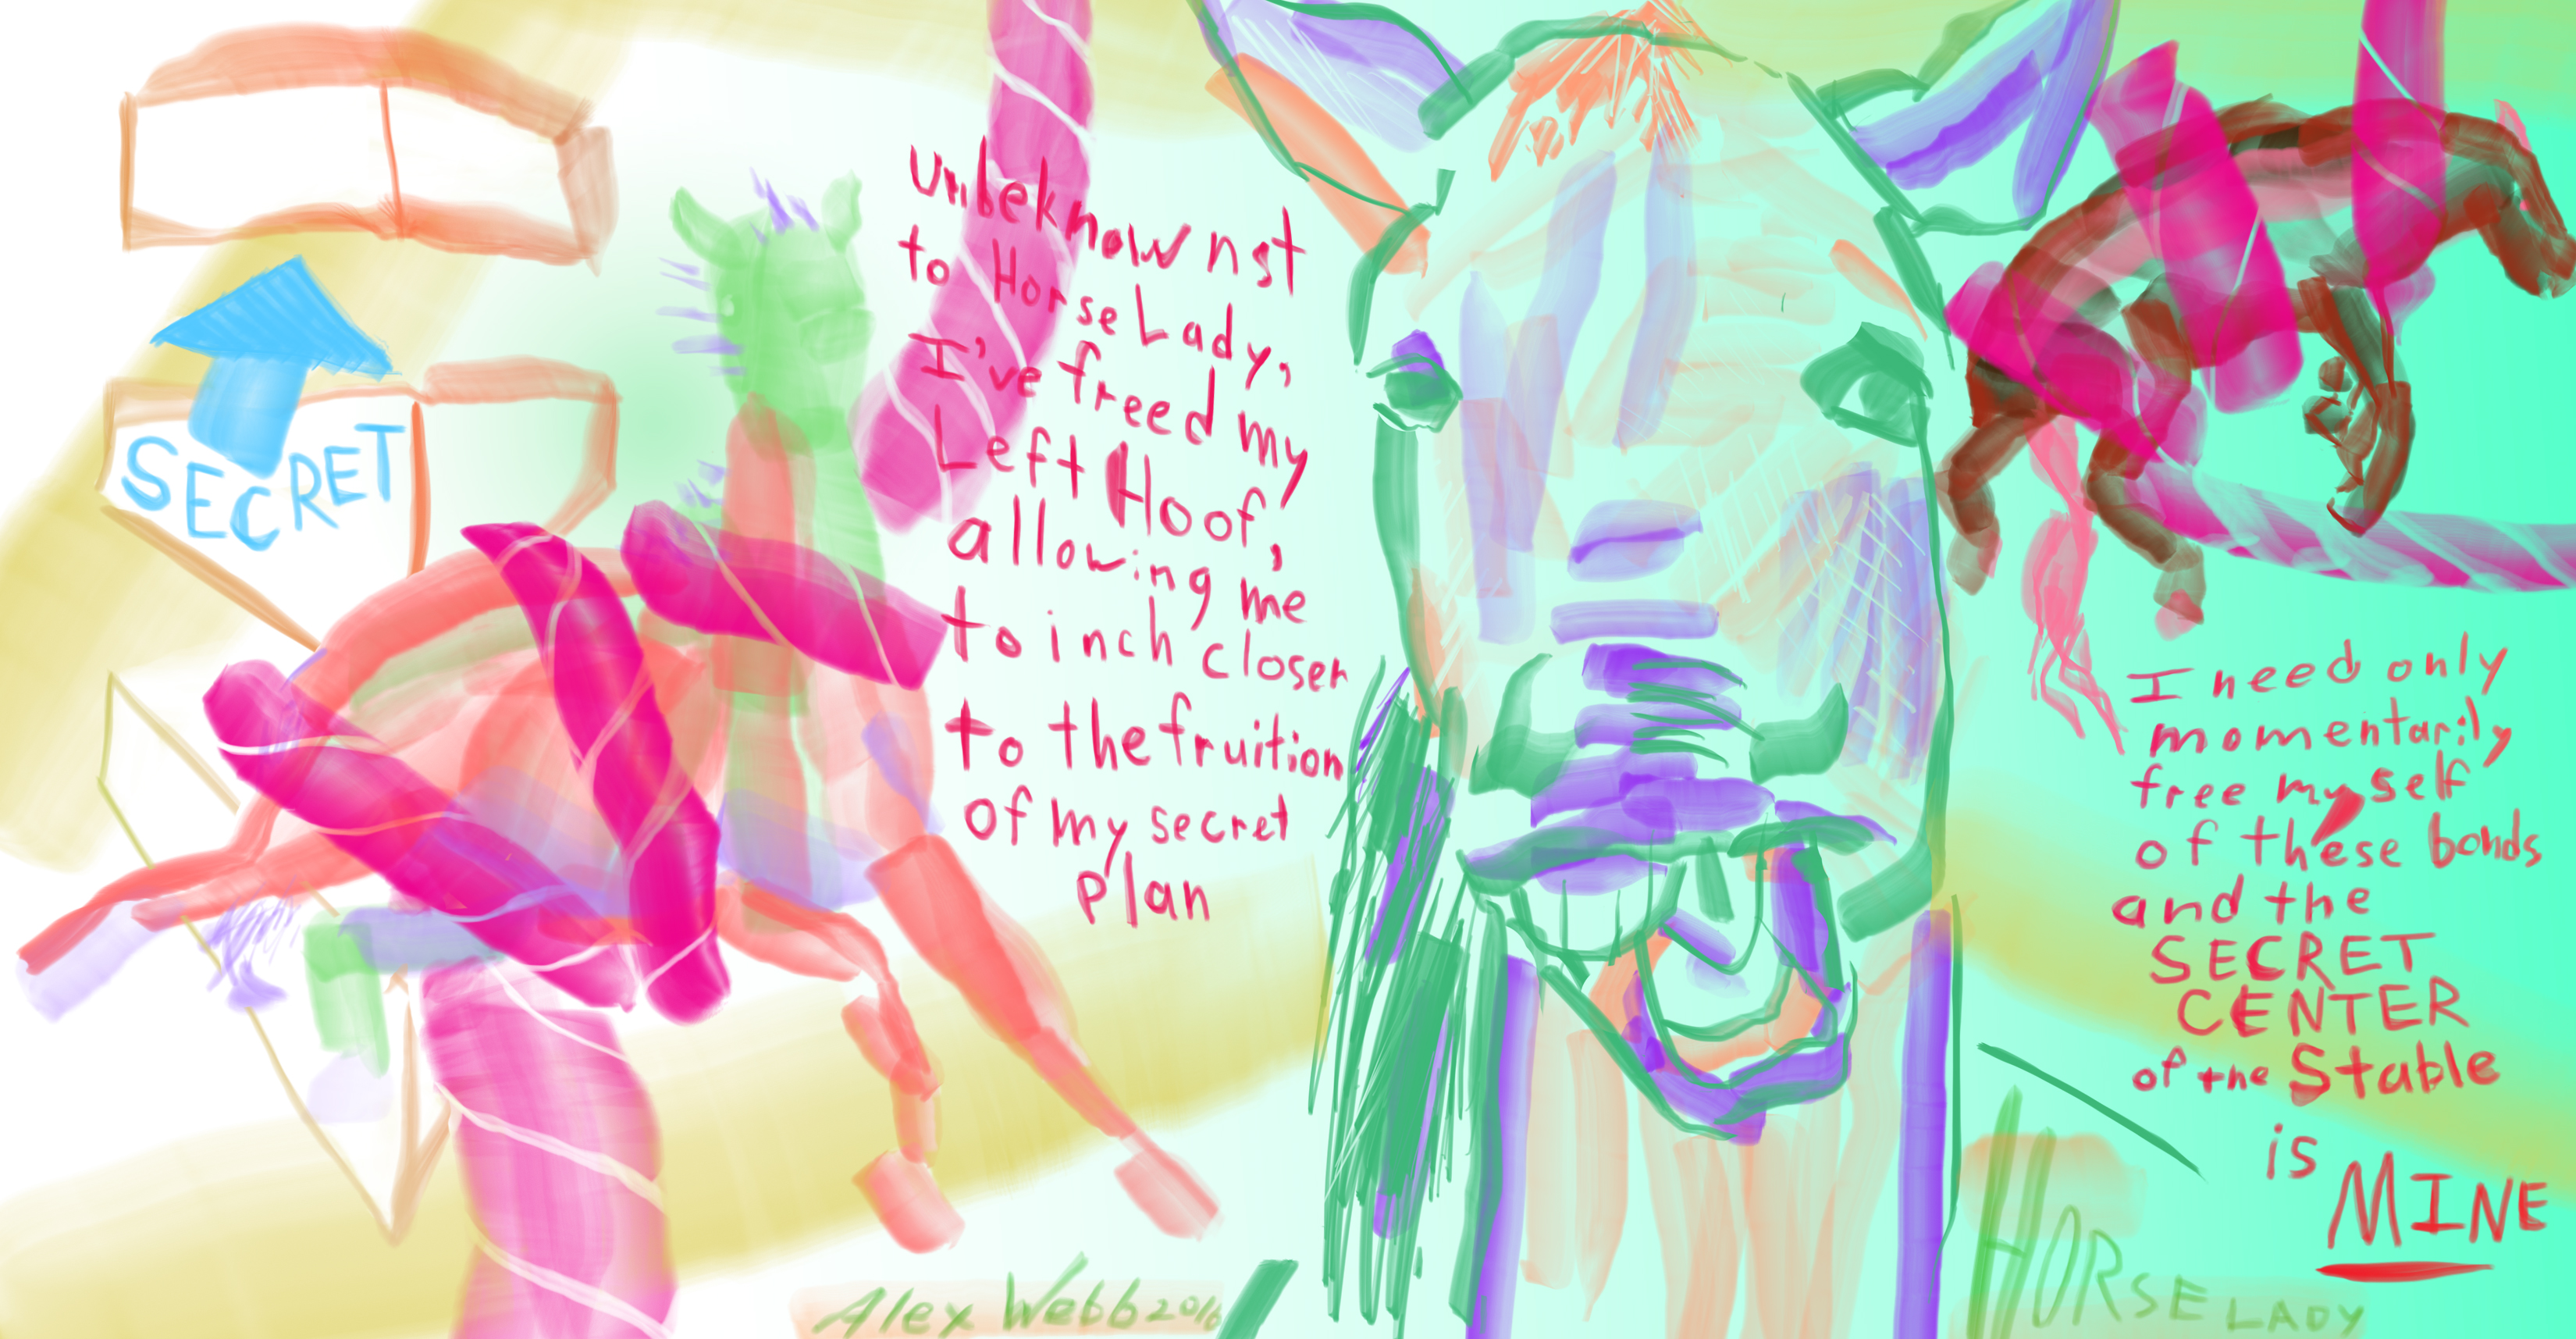 SECRET
Unbeknownst
to Horse Lady,
I've freed my
Left Hoof,
allowing me
to inch closer
to the fruition
of my secret
plan
I need only
momentarily
free myself
of these bonds
and the
SECRET
CENTER
of the Stable
is
MINE
Alex Webb 2016
HORSE LADY